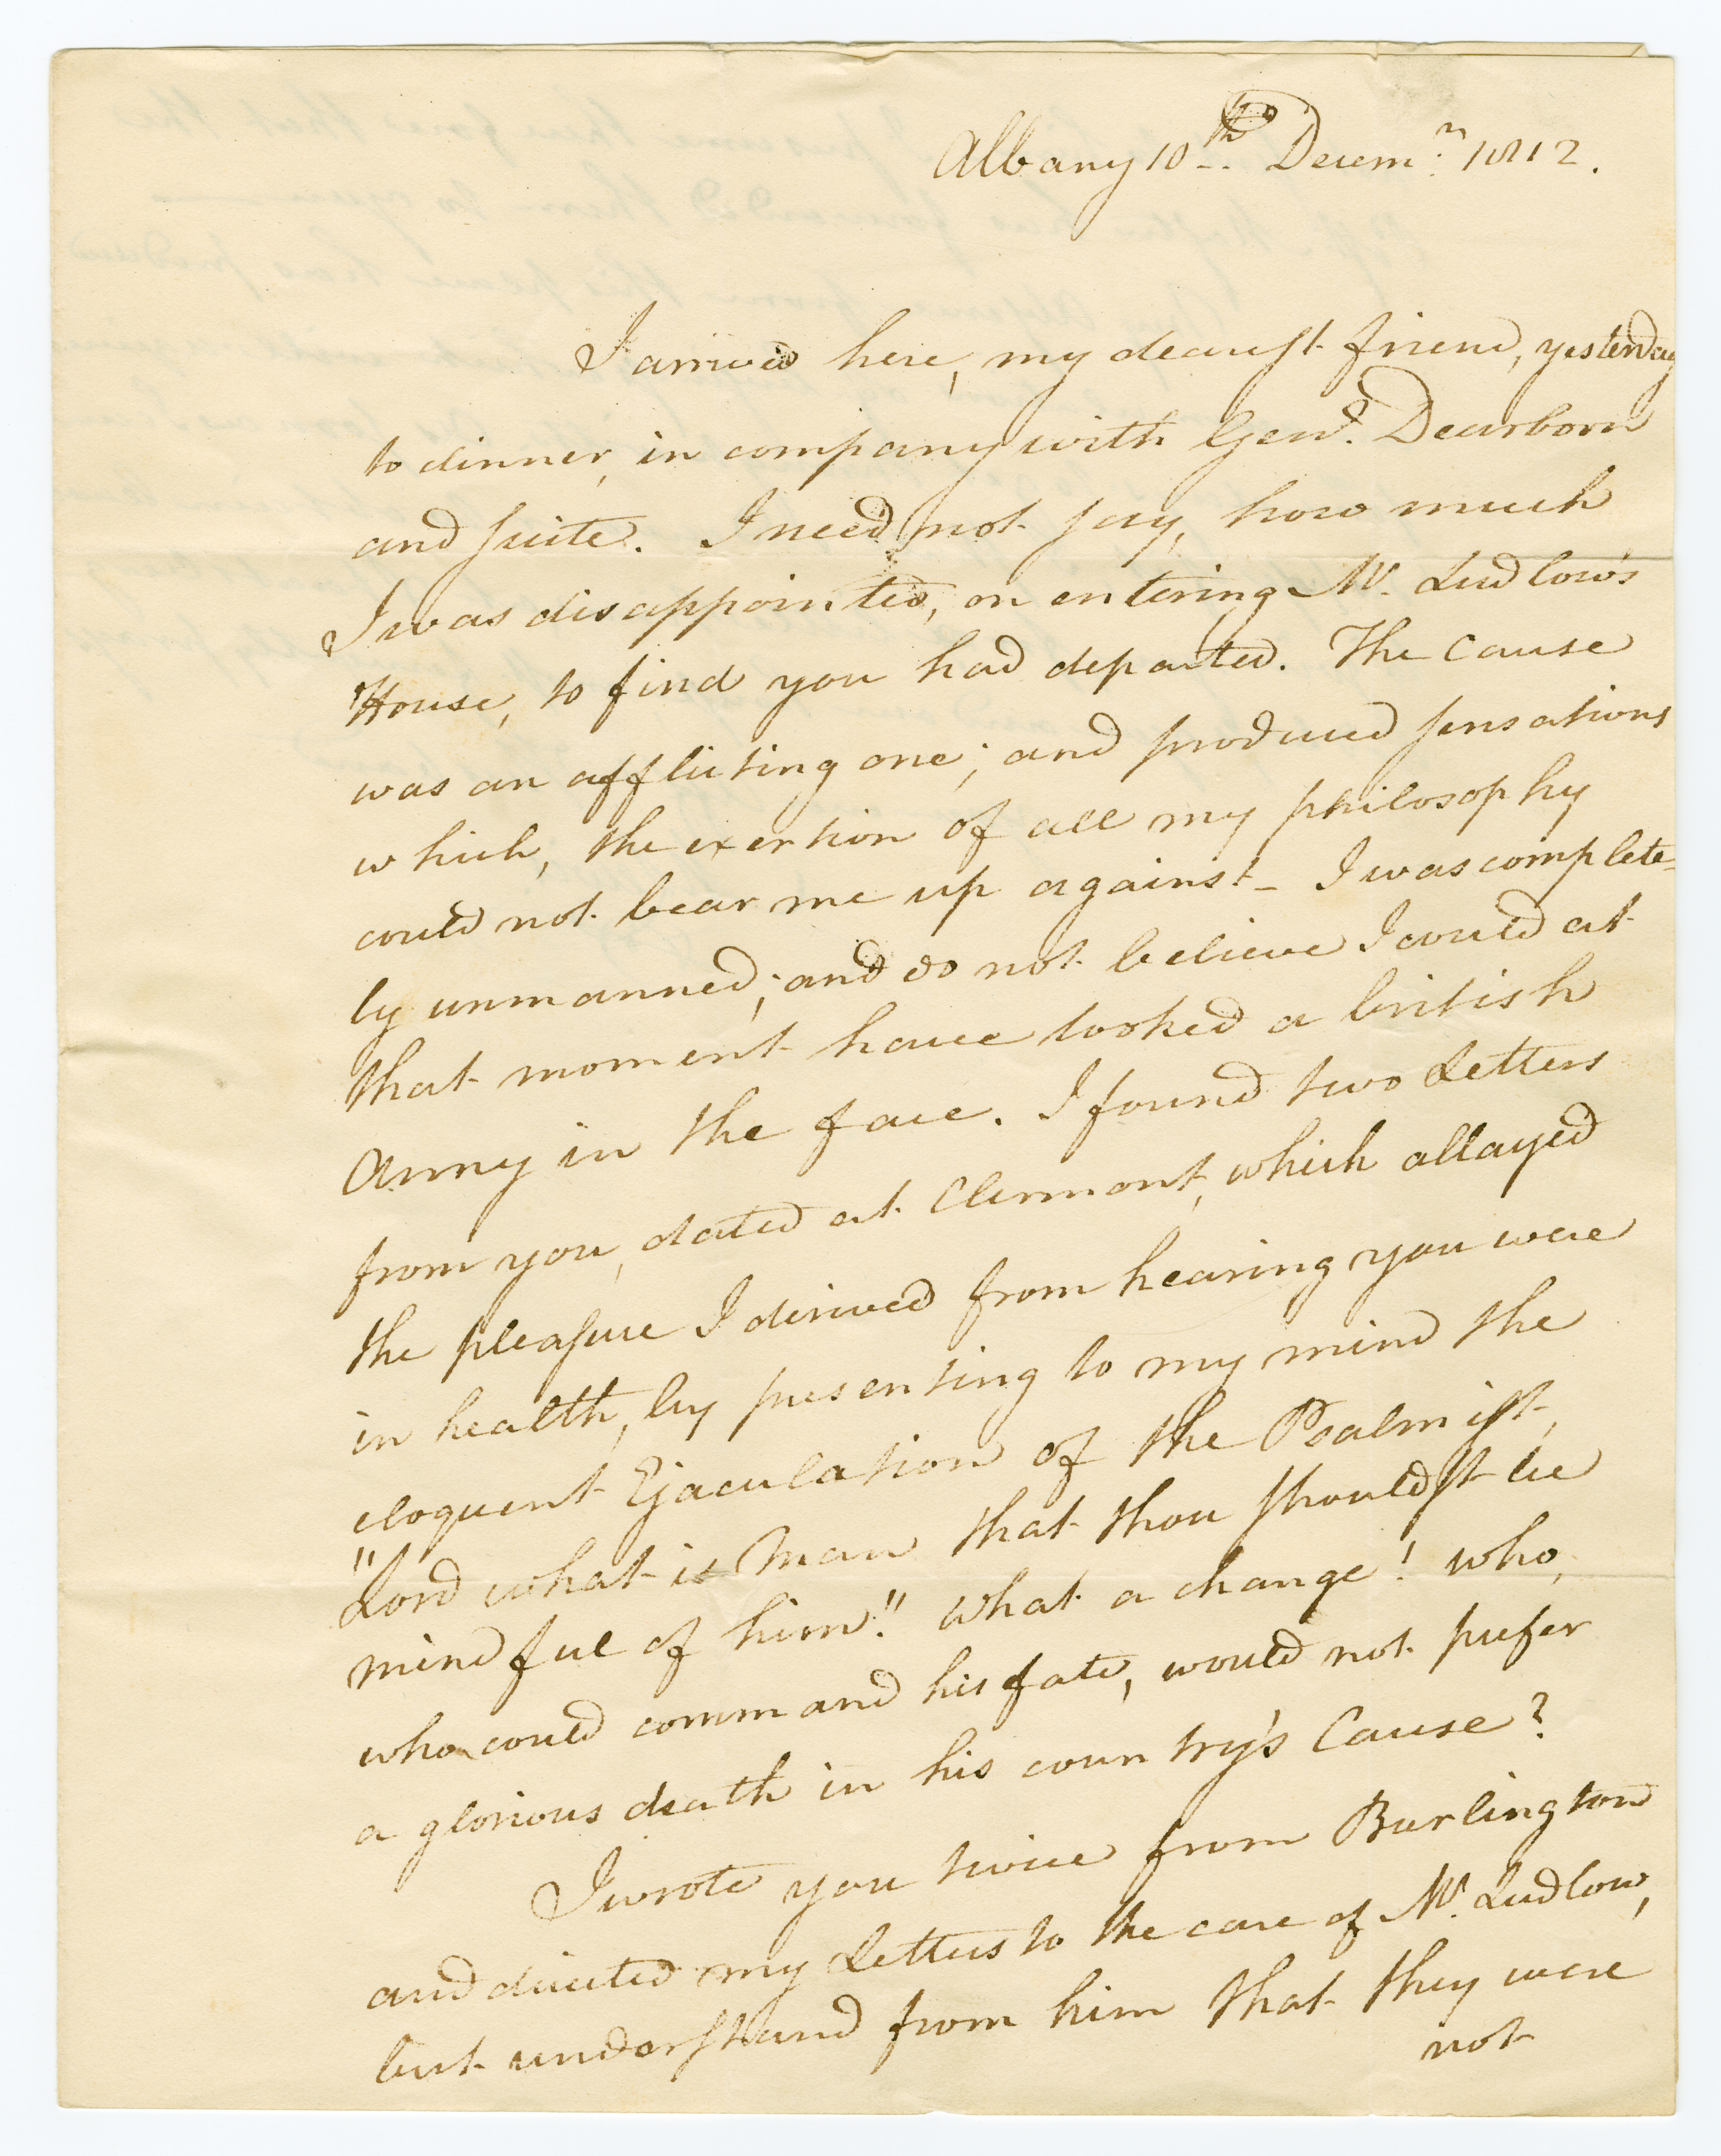 Albany 10th. Decemr. 1812.
I arrived here, my dearest friend, yesterday
to dinner, in company with Genl. Dearborn
and suite. I need not say, how much
I was disappointed, on entering Mr. Ludlow's
House, to find you had departed. The Cause
was an afflicting one; and produced sensations
which, the exertion of all my philosophy
could not bear me up against_ I was complete-
ly unmanned; and do not believe I could at
that moment have looked a british
Army in the face. I found two Letters
from you, dated at Clermont, which allayed
the pleasure I derived from hearing you were
in health, by presenting to my mind the
eloquent Ejaculation of the Psalmist,
"Lord what is Man that thou shouldst be
mindful of him." what a change! who,
who could command his fate, would not prefer
a glorious death in his country's Cause?
I wrote you twice from Burlington
and directed my Letters to the care of Mr. Ludlow,
but understand from him that they were
not